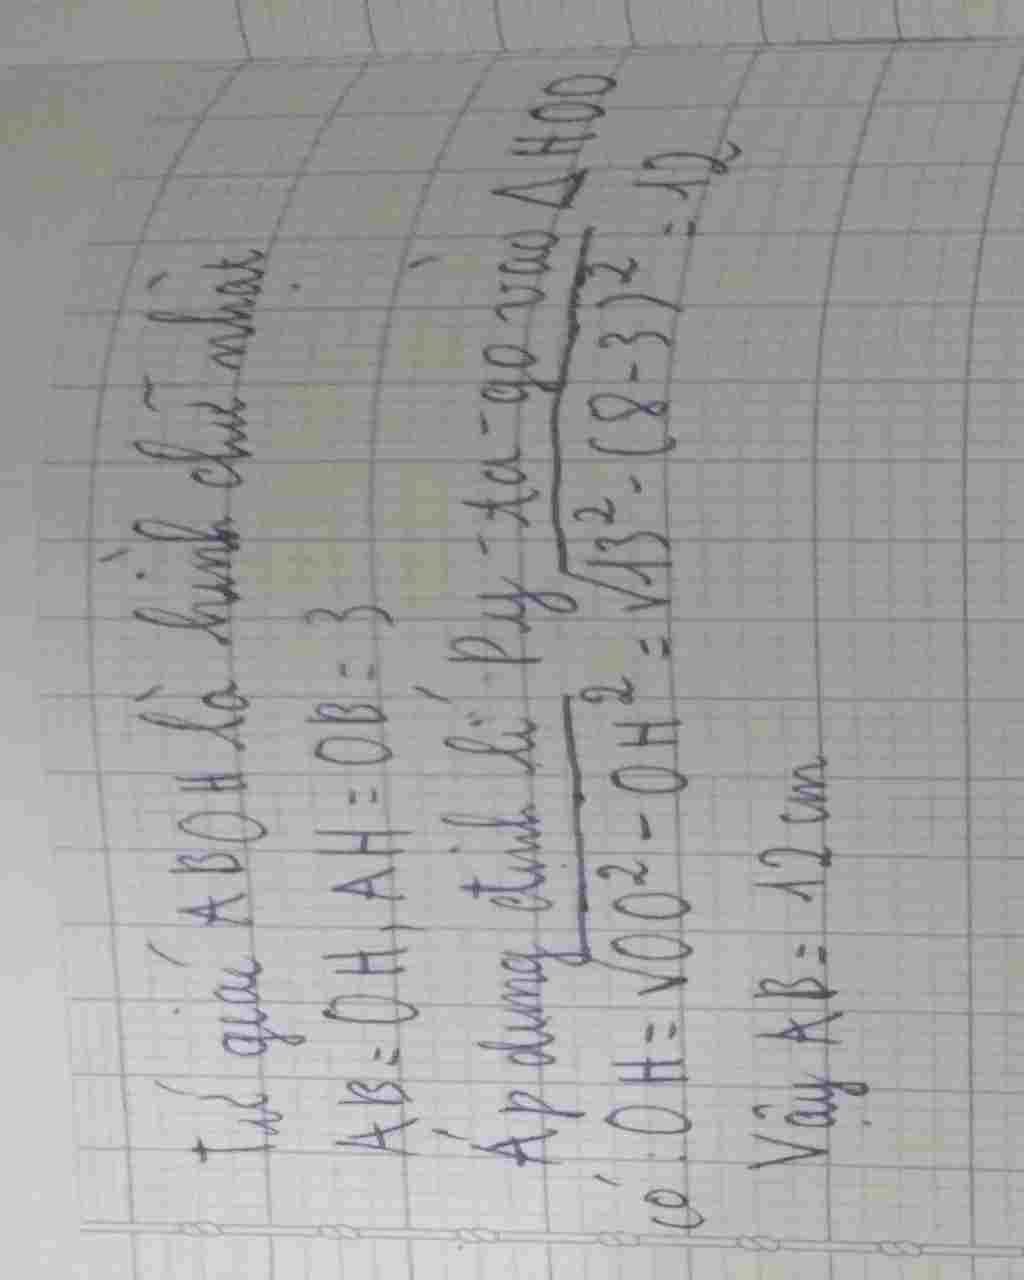 Tứ giác ABOH là hình chữ nhật
AB = OH, AH = OB = 3
Áp dụng định lí Py-ta-go vào △ HOO
có: OH = √OO² - OH² = √13² - (8-3)² = 12
Vậy AB = 12 cm